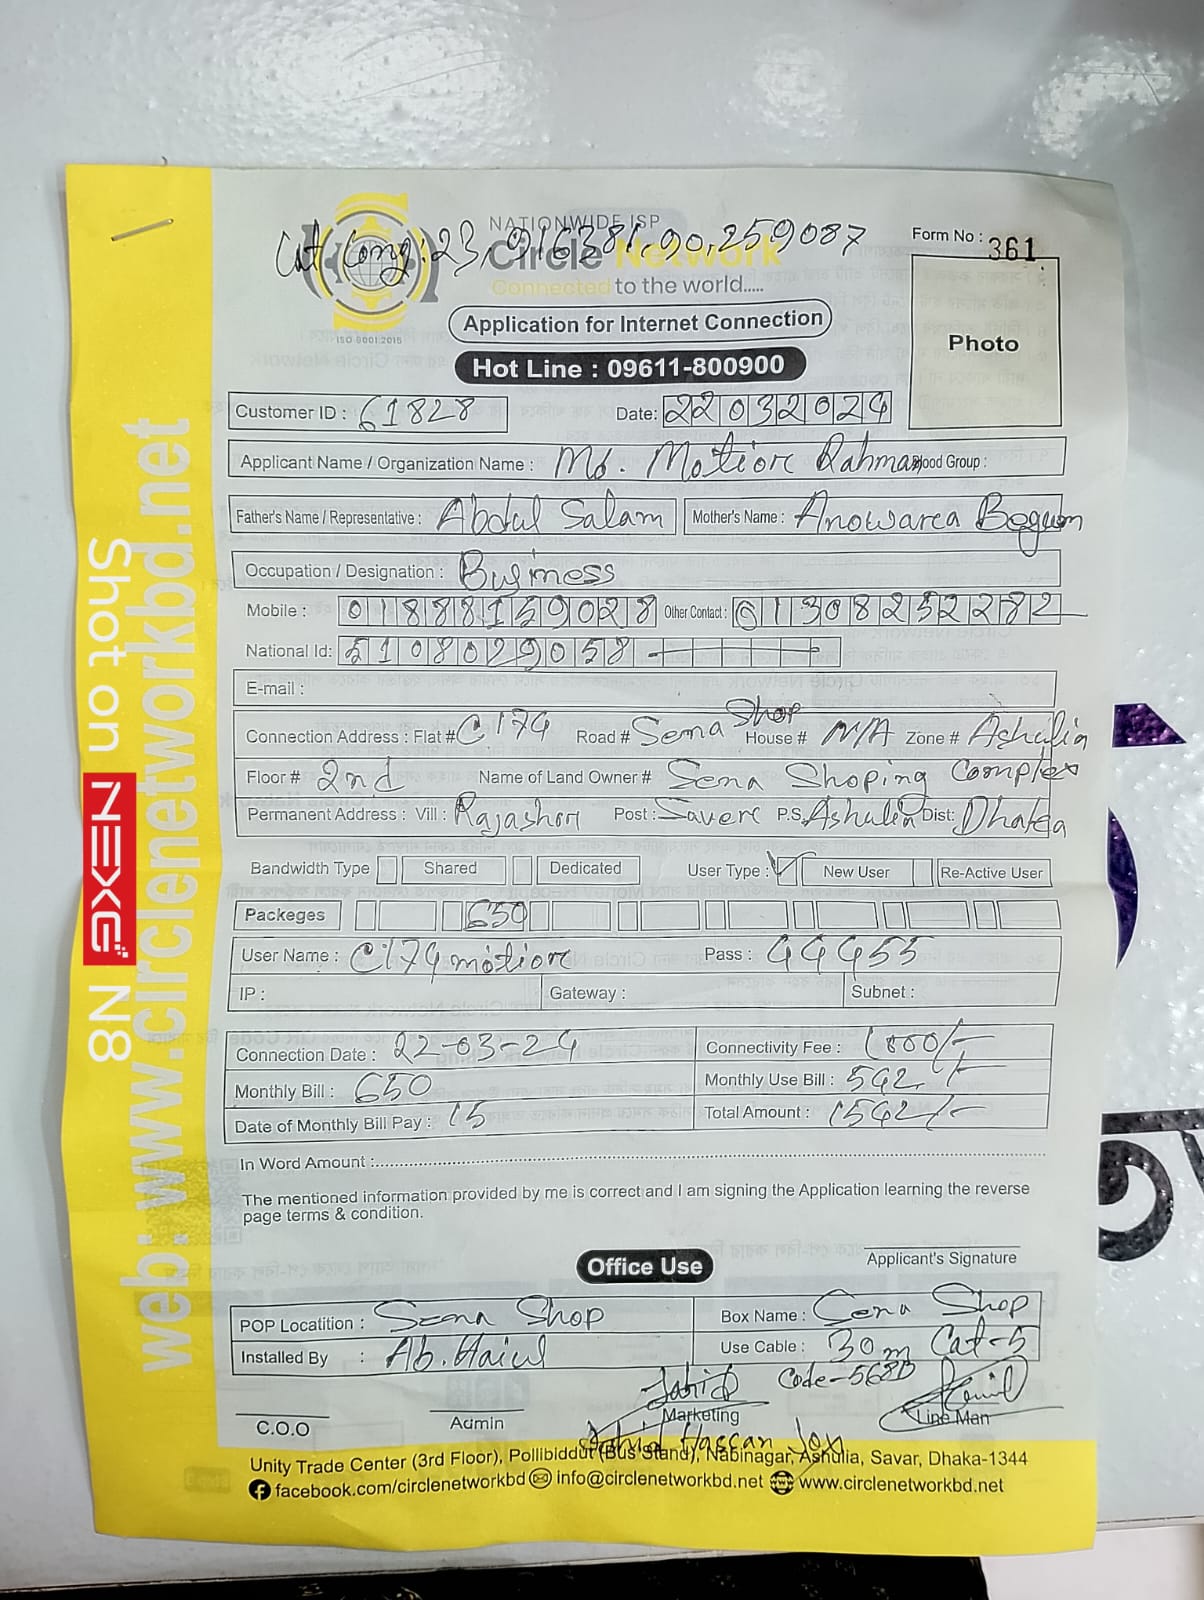 NATIONWIDE ISP
Lat Long: 23,916381,90,259087
Circle Network
Form No : 361
Connected to the world.....
ISO 9001:2015
Application for Internet Connection
Photo
Hot Line : 09611-800900
Customer ID : 61828 Date: 22032024
Applicant Name / Organization Name : Md. Motior Rahman Blood Group :
Father's Name / Representative : Abdul Salam Mother's Name : Anowarea Begum
Occupation / Designation : Business
Mobile : 01888159028 Other Contact : 01308252282
National Id: 5108029058
E-mail :
Connection Address : Flat # C174 Road # Sena Shop House # N/A Zone # Ashulia
Floor # 2nd Name of Land Owner # Sena Shoping Complex
Permanent Address : Vill : Rajashon Post : Saver P.S. Ashulia Dist: Dhaka
Bandwidth Type Shared Dedicated User Type : New User Re-Active User
Packeges 650
User Name : C174motior Pass : 44455
IP : Gateway : Subnet :
Connection Date : 22-03-24 Connectivity Fee : 1000/-
Monthly Bill : 650 Monthly Use Bill : 542/-
Date of Monthly Bill Pay : 15 Total Amount : 1542/-
In Word Amount :
The mentioned information provided by me is correct and I am signing the Application learning the reverse
page terms & condition.
Applicant's Signature
Office Use
POP Locatition : Sena Shop Box Name : Sena Shop
Installed By : Ab. Haiul Use Cable : 30m Cat-5
Code-568D
C.O.O Admin Marketing Line Man
Hassan
Unity Trade Center (3rd Floor), Pollibiddut (Bus Stand), Nabinagar, Ashulia, Savar, Dhaka-1344
facebook.com/circlenetworkbd info@circlenetworkbd.net www.circlenetworkbd.net
web: www.circlenetworkbd.net
Shot on NEXG N8